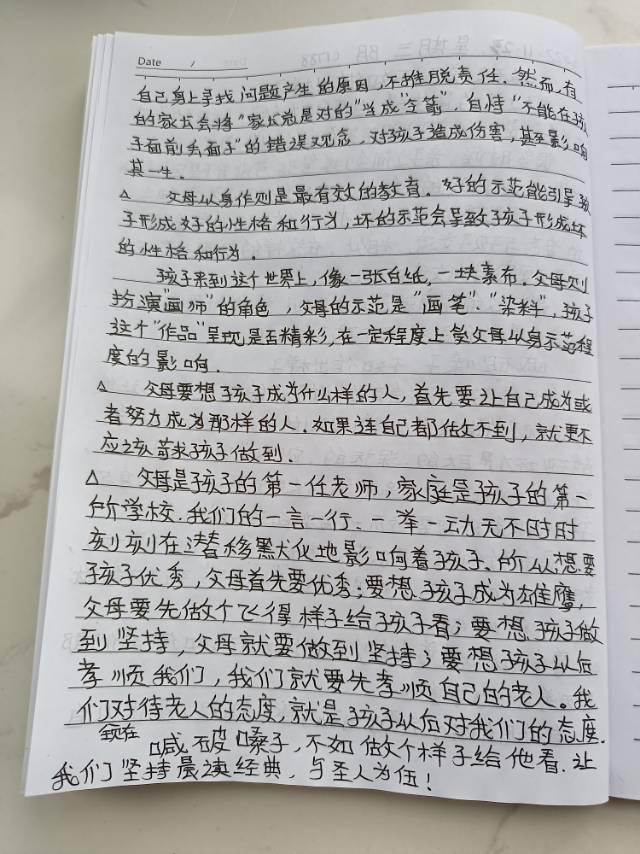 Date /
自己身上寻找问题产生的原因,不推脱责任.然而,有
的家长会将"家长总是对的"当成"令箭",自恃"不能在孩
子面前丢面子"的错误观念,对孩子造成伤害,甚至影响
其一生.
△ 父母以身作则是最有效的教育.好的示范能引导孩
子形成好的性格和行为,坏的示范会导致孩子形成坏
的性格和行为.
孩子来到这个世界上,像一张白纸,一块素布.父母则
扮演"画师"的角色,父母的示范是"画笔"、"染料",孩子
这个"作品"呈现是否精彩,在一定程度上受父母以身示范程
度的影响.
△ 父母要想孩子成为什么样的人,首先要让自己成为或
者努力成为那样的人.如果连自己都做不到,就更不
应该苛求孩子做到.
△ 父母是孩子的第一任老师,家庭是孩子的第一
所学校.我们的一言一行、一举一动无不时时
刻刻在潜移默化地影响着孩子、所以想要
孩子优秀,父母首先要优秀;要想孩子成为雄鹰,
父母要先做个飞得样子给孩子看;要想孩子做
到坚持,父母就要做到坚持;要想孩子以后
孝顺我们,我们就要先孝顺自己的老人。我
们对待老人的态度,就是孩子以后对我们的态度.
喊破嗓子,不如做个样子给他看.让
我们坚持晨读经典,与圣人为伍!